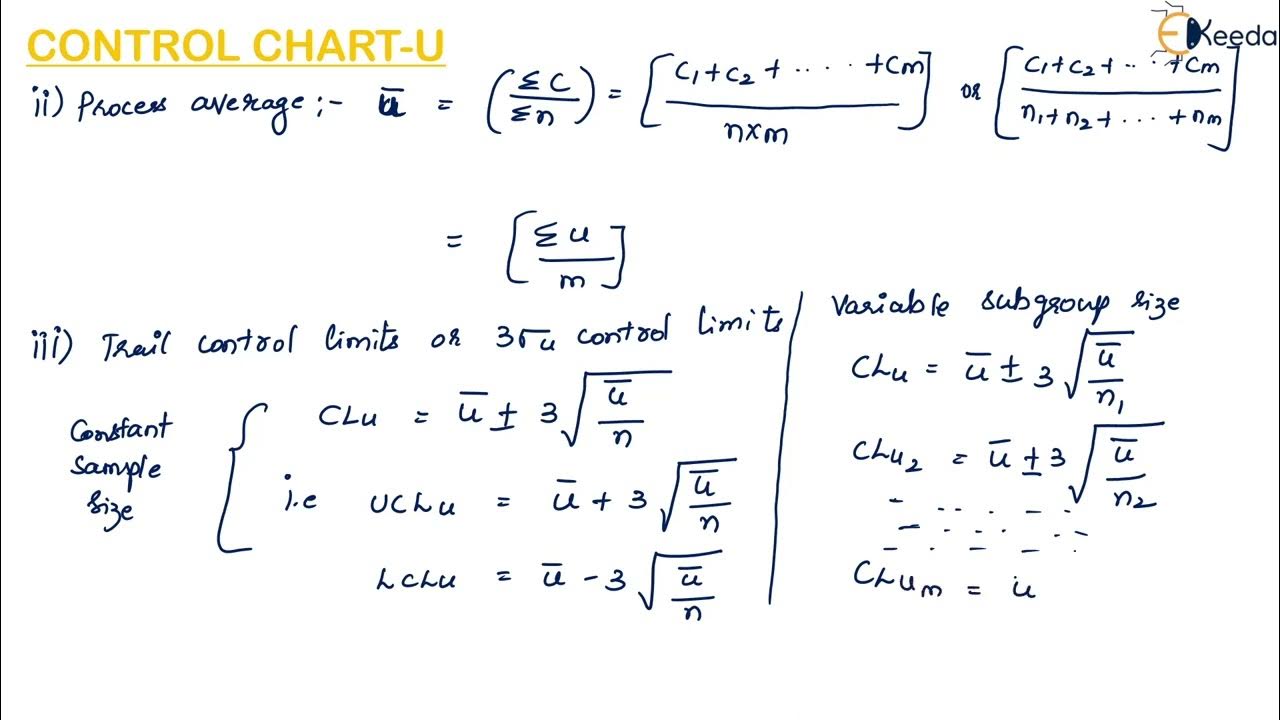 CONTROL CHART-U
EKeeda
ii) Process average:- ū = (ΣC/Σn) = [C₁+C₂+.....+Cm / n×m] or [C₁+C₂+...+Cm / n₁+n₂+...+nm]
= [Σu/m]
iii) Trail control limits or 3σu control limits
Constant sample size
CLu = ū ± 3√(ū/n)
i.e UCLu = ū + 3√(ū/n)
LCLu = ū - 3√(ū/n)
Variable subgroup size
CLu = ū ± 3√(ū/n₁)
CLu₂ = ū ± 3√(ū/n₂)
CLum = u